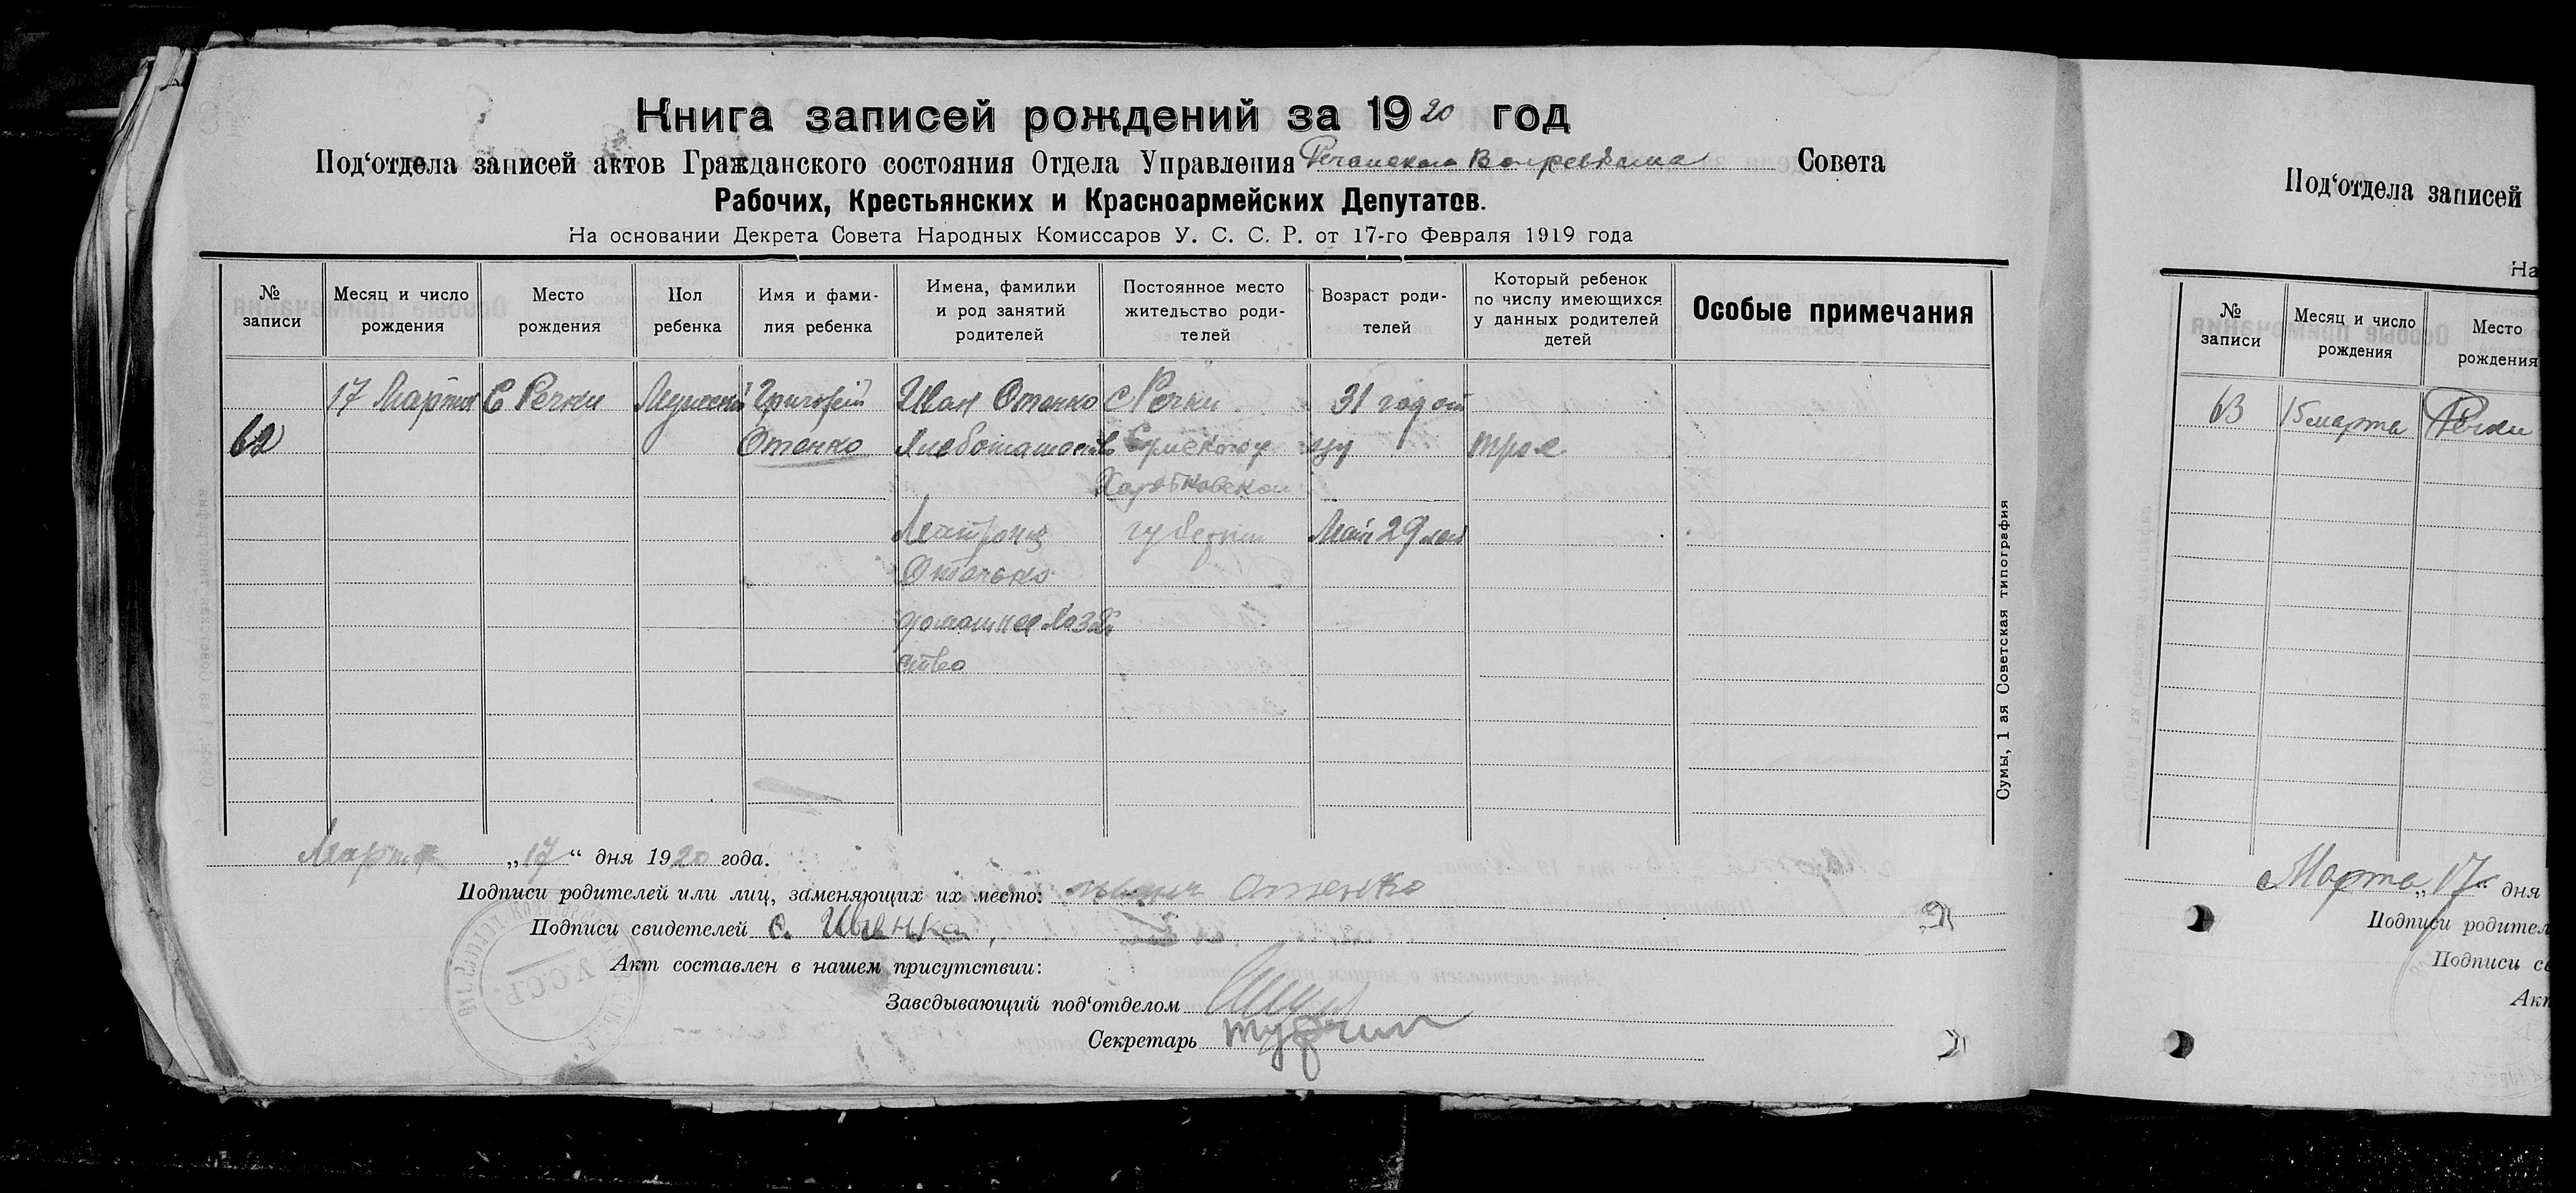 Книга записей рождений за 1920 год
Под‘отдела записей актов Гражданского состояния Отдела Управления Речанского Волревкома Совета
Рабочих, Крестьянских и Красноармейских Депутатов.
На основании Декрета Совета Народных Комиссаров У. С. С. Р. от 17-го Февраля 1919 года
№ записи
Месяц и число рождения
Место рождения
Пол ребенка
Имя и фами-
лия ребенка
Имена, фамилии
и род занятий
родителей
Постоянное место
жительство роди-
телей
Возраст роди-
телей
Который ребенок
по числу имеющихся
у данных родителей
детей
Особые примечания
62
17 Марта
С Речки
Мужской
Григорий
Отенко
Иван Отенко
Хлебопашество
Отенько
домашнее хозяй
ство
с Речки
Сумского у
Харьковской
губернии
31 год от
цу
Мат 29 лет
трое
Марта „17“ дня 1920 года.
Подписи родителей или лиц, заменяющих их место: Иван Отенко
Подписи свидетелей
Акт составлен в нашем присутствии:
Заведывающий под‘отделом
Секретарь
Сумы, 1 ая Советская типография
Под‘отдела записей
На
№ записи
Месяц и число рождения
Место рождения
63
15 марта
Речки
Марта „17“ дня
Подписи родител
Подписи св
Акт